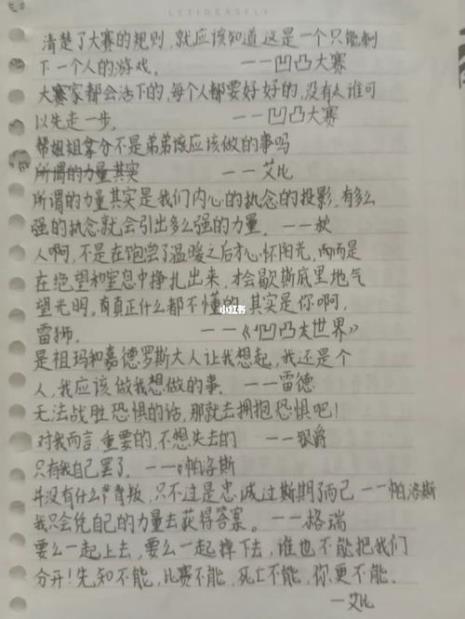 清楚了大赛的规则,就应该知道这是一个只能剩
下一个人的游戏。 ——凹凸大赛
大赛家都会活下的,每个人都要好好的,没有人谁可
以先走一步。 ——凹凸大赛
帮姐姐拿分不是弟弟该应该做的事吗
所谓的力量其实 ——艾比
所谓的力量其实是我们内心的执念的投影,有多么
强的执念就会引出多么强的力量。 ——秋
人啊,不是在饱尝了温暖之后才心怀阳光,而而是
在绝望和窒息中挣扎出来,才会歇斯底里地气
望光明,有真正什么都不懂的,其实是你啊,
雷狮。 ——《凹凸大世界》
小红书
是祖玛和嘉德罗斯大人让我想起,我还是个
人,我应该做我想做的事。 ——雷德
无法战胜恐惧的话,那就去拥抱恐惧吧!
对我而言,重要的,不想失去的 ——银爵
只有我自己罢了。 ——帕洛斯
并没有什么背叛,只不过是忠诚过斯期了而已 ——帕洛斯
我只会凭自己的力量去获得答案。 ——格瑞
要么一起上去,要么一起摔下去,谁也不能把我们
分开!先知不能,比赛不能,死亡不能,你更不能。
—艾比